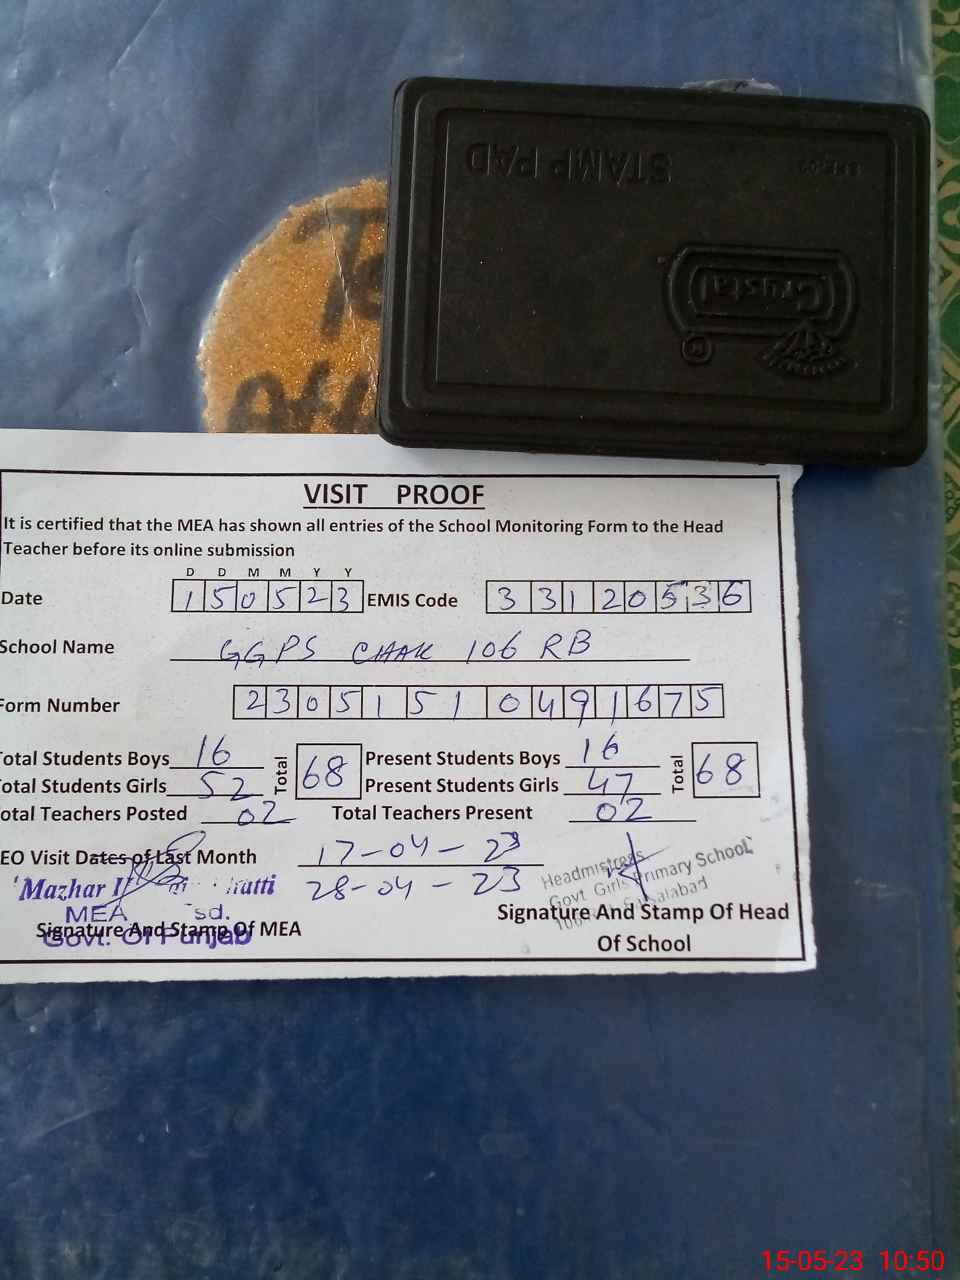 STAMP PAD
Crystal
VISIT PROOF
It is certified that the MEA has shown all entries of the School Monitoring Form to the Head
Teacher before its online submission
D D M M Y Y
Date 150523 EMIS Code 33120536
School Name GGPS CHAK 106 RB
Form Number 2305151 0491675
Total Students Boys 16 Total 68 Present Students Boys 16 Total 68
Total Students Girls 52 Present Students Girls 47
Total Teachers Posted 02 Total Teachers Present 02
EO Visit Dates of Last Month 17-04-23
28-04-23
Mazhar
MEA
Govt. Of Punjab
Signature And Stamp Of MEA
Headmistress
Govt Girls Primary School
Signature And Stamp Of Head
Of School
15-05-23 10:50